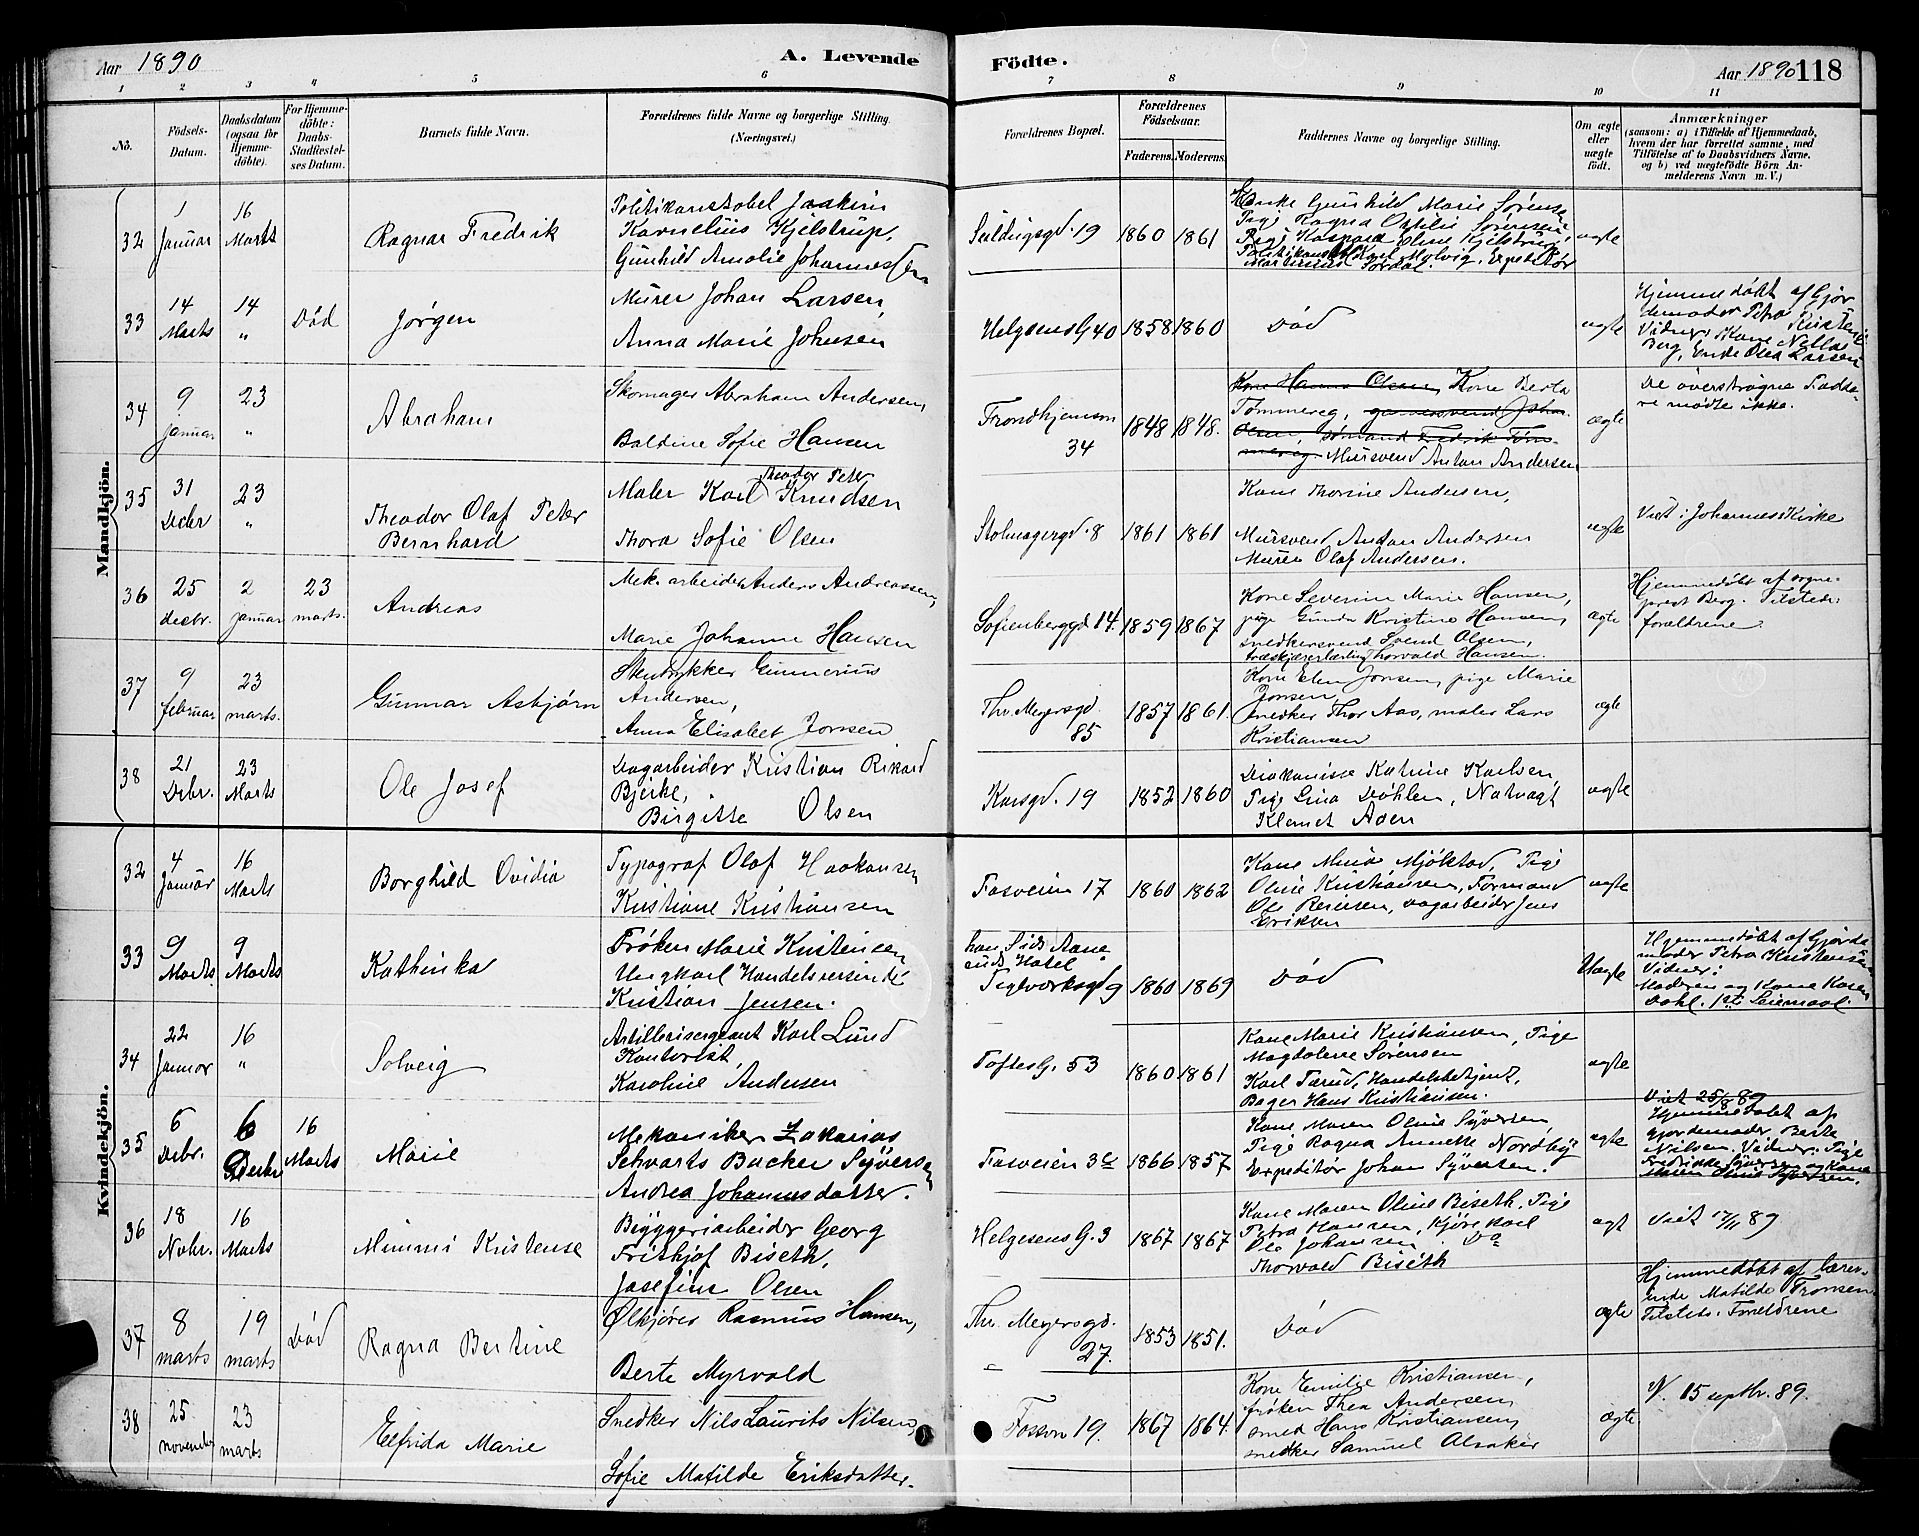 Aar 1890
A. Levende Födte.
Aar 1890 118
1 2 3 4 5 6 7 8 9 10 11
No.
Födsels-Datum.
Daabsdatum (ogsaa for Hjemme-döbte).
For Hjemme-döbte: Daabs-Stadfæstelses Datum.
Barnets fulde Navn.
Forældrenes fulde Navne og borgerlige Stilling.
(Næringsvei.)
Forældrenes Bopæl.
Forældrenes Födselsaar.
Faderens. Moderens.
Faddernes Navne og borgerlige Stilling.
Om ægte eller uægte födt.
Anmærkninger
(saasom: a) i Tilfælde af Hjemmedaab,
hvem der har forrettet samme, med
Tilföielse af to Daabsvidners Navne,
og b) ved uægtefödte Börn An-
melderens Navn m. V.)
Mandkjön.
32
1 Januar
16 Marts
Ragnar Fredrik
Politikonstabel Joakim
Kornelius Kjelstrup,
Gunhild Amalie Johannessen
19
1860 1861
Enke Gunhild Marie Sörensen
Pige Ragna Othilie Sörensen
Pige Oline Kjelstrup,
Politikonst Karl Molvig, Expeditör
ægte
33
14 Marts
14 "
Död
Jörgen
Murer Johan Larsen,
Anna Marie Johnsen
Helgesens G 40
1858 1860
Död
ægte
Hjemmedöbt af Gjor
demoder Petra Kristens
Vidner: Kone
Berg, Enke Olea Larsen
34
9 januar
23 "
Abraham
Skomager Abraham Andersen,
Baldine Sofie Hansen
Trondhjemsvn
34
1848 1848.
Kone Hanna Olsen, Kone Berta
Tømmereg, Johan
Olsen, Fredrik Töm-
mereg. Mursvend Anton Andersen
ægte
De överströgne Fadde-
re mödte ikke.
35
31 Decbr
23 "
Theodor Olaf Peter
Bernhard
Theodor Peter
Maler Karl Knudsen
Thora Sofie Olsen
Stolmagergd. 8
1861 1861
Kone Thorine Andersen,
Mursvend Anton Andersen
Murer Olaf Andersen.
ægte
Viet i Johannes Kirke
36
25 decbr.
2 januar
23 marts.
Andreas
Mek. arbeider Anders Andreassen,
Marie Johanne Hansen
Sofienberggd 14.
1859 1867
Kone Severine Marie Hansen,
pige Gunda Kristine Hansen,
snedkersvend Svend Olsen,
træskjærerlærling Thorvald Hansen.
ægte
Hjemmedöbt af sogne-
prest Berg. Tilstede:
forældrene.
37
9 februar
23 marts.
Gunnar Asbjørn
Stentrykker Gunnerius
Andersen,
Anna Elisabet Jonsen
Thv. Meyersgd.
85
1857 1861.
Kone Elen Jonsen, pige Marie
Jonsen
snedker Thor Aas, maler Lars
Kristiansen
ægte
38
21 Decbr.
23 Marts
Ole Josef
Dagarbeider Kristian Rikard
Bjerke,
Birgitte Olsen
Korsgd. 19
1852 1860
Diakonisse Katrine Karlsen,
Pige Lina Döhlen, Natvagt
Klemet Aoen
ægte
Kvindekjön.
32
4 Januar
16 Marts
Borghild Ovidia
Typograf Olaf Haakonsen
Kristiane Kristiansen
Fosveien 17
1860 1862
Kone Mina Mjöltad, Pige
Oline Kristiansen, Formand
Ole Bernsen, Dagarbeider Jens
Eriksen
ægte
33
9 Marts.
9 Marts
Kathinka
Fröken Marie Kristensen
Ungkarl Handelsreisende
Kristian Jensen.
Hotel
Teglværksgd 9
1860 1869
Död
Uægte
Hjemmedöbt af Gjorde-
moder Petra Kristensen
Vidner:
Moderen og Kone Karen
Dahl. 1ste Leiermaal.
34
22 Januar
16 "
Solveig
Artillerisergeant Karl Lund
Kontorist,
Karoline Andersen
Toftes G. 53
1860 1861
Kone Marie Kristiansen, Pige
Magdalene Sörensen
Karl Tærud, Handelsbetjent,
Bager Hans Kristiansen.
ægte
35
6 Decbr.
6 Decbr
16 Marts
Marie
Mekaniker Zakarias
Schvarts Backer Syversen
Andrea Johannesdatter.
Fosveien 3c
1866 1857
Kone Maren Oline Syversen,
Pige Ragna Annette Nordby
Expeditör Johan Syversen.
ægte
Viet 25/8 89
Hjemmedöbt af
gjordemoder Berte
Nilsen. Vidner: Pige
Fredrikke Syversen og Kone
Maren Oline Syversen.
36
18 Nobr.
16 Marts
Mimmi Kristense
Bryggeriarbeider Georg
Frithjof Biseth,
Josefine Olsen
Helgesens G. 3
1867 1867
Kone Maren Oline Biseth, Pige
Petra Hansen, Kjörekarl
Ole Johansen Do
Thorvald Biseth
ægt
Viet 17/11 89
37
8 marts
19 marts
Död
Ragna Bertine
Ølkjörer Rasmus Hansen,
Berte Myrvold
Thv. Meyersgd.
27.
1853 1851.
Död
ægte
Hjemmedöbt af lærer-
inde Matilde Fronsen.
Tilsteds. Forældrene
38
25 november
23 marts
Elfrida Marie
Snedker Nils Laurits Nilsen,
Sofie Matilde Eriksdatter.
Fossvn 19.
1867 1864.
Kone Emilie Kristiansen,
fröken Thea Andersen,
smed Hans Kristiansen,
snedker Samuel Alsaker
ægte
V. 15 septbr. 89.